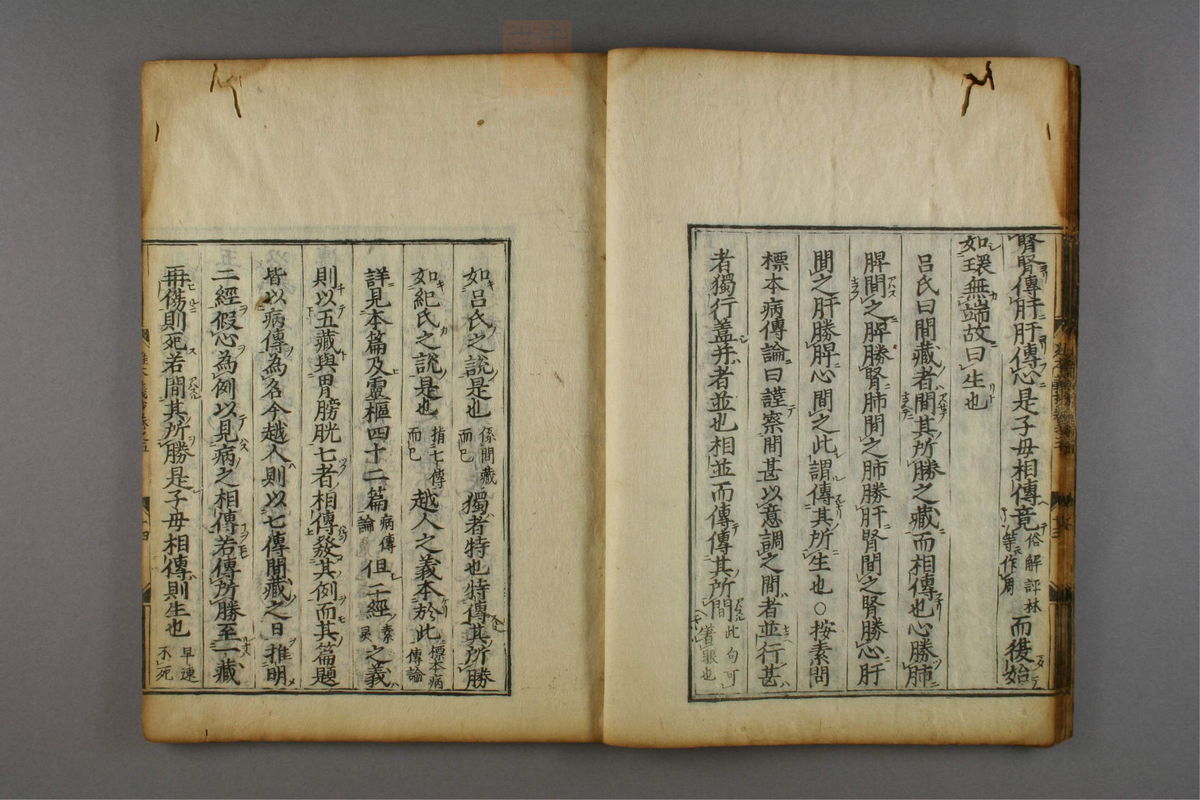 腎腎傳肝肝傳心是子母相傳竟俗解評林等作周而復始
如環無端故曰生也
呂氏曰間藏者間其所勝之藏而相傳也心勝肺
脾間之脾勝腎肺間之肺勝肝腎間之腎勝心肝
間之肝勝脾心間之此謂傳其所生也○按素問
標本病傳論曰謹察間甚以意調之間者並行甚
者獨行盖并者並也相並而傳傳其所間此句可著眼也
如呂氏之說是也係間藏而已獨者特也特傳其所勝
如紀氏之說是也指七傳而已越人之義本於此標本病傳論
詳見本篇及靈樞四十二篇病傳論但二經素靈之義
則以五藏與胃膀胱七者相傳發其例而其篇題
皆以病傳為名今越人則以七傳間藏之目推明
二經假心為例以見病之相傳若傳所勝至一藏
再傷則死若間其所勝是子母相傳則生也早速不死